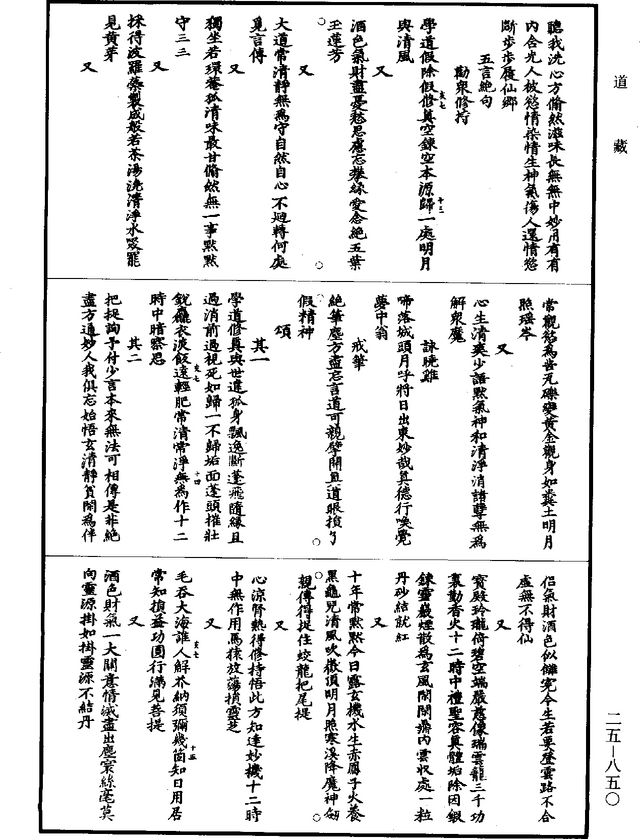 道藏
聽我洗心方翛然滋味長無無中妙用有有
內合光人被慾情染情生神氣傷人還情慾
斷步步履仙鄉
五言絕句
勸眾修持
學道假除假修真空鍊空本源歸一處明月
與清風
又
酒色氣財盡憂愁思慮忘攀緣愛念絕五葉
玉蓮芳
又
大道常清靜無為守自然自心不迴轉何處
覓言傳
又
獨坐若環菴孤清味最甘翛然無一事默默
守三三
又
採得波羅蘂製成般若茶湯澆清淨水吸罷
見黃芽
又
常觀慾為苦瓦礫變黃金觀身如糞土明月
照瑤岑
又
心生清爽少語默氣神和清淨消諸孽無為
解眾魔
詠曉雞
啼落城頭月呼將日出東妙哉真德行喚覺
夢中翁
戒葷
絕葷塵方盡忘言道可親擘開真道眼損了
假精神
頌
其一
學道修真與世違孤身飄逸斷蓬飛隨緣且
過消前過視死如歸一不歸垢面蓬頭摧壯
銳麤衣淡飯遠輕肥常清常淨無為作十二
時中暗察思
其二
把捉詢予付少言本來無法可相傳是非絕
盡方通妙人我俱忘始悟玄清靜貧閑為伴
侶氣財酒色似讎冤今生若要登雲路不合
虛無不得仙
又
寶殿玲瓏倚碧空端嚴慈像瑞雲龍三千功
裏勤香火十二時中禮聖容真體垢除因鍛
鍊靈巖煙散為玄風閑閑鼎內雲收處一粒
丹砂結就紅
又
十年常默默今日露玄機水生赤鳳子火養
黑龜兒清風吹嶽頂明月照寒溪降魔神劍
親傳得捉住蛟龍把尾提
又
心涼腎熱得修持悟此方知達妙機十二時
中無作用馬猿放蕩損靈芝
又
毛吞大海誰人解芥納須彌幾箇知日用居
常知損益功圓行滿見菩提
又
酒色財氣一大關意情滅盡出塵寰絲毫莫
向靈源掛如掛靈源不結丹
二五—八五〇